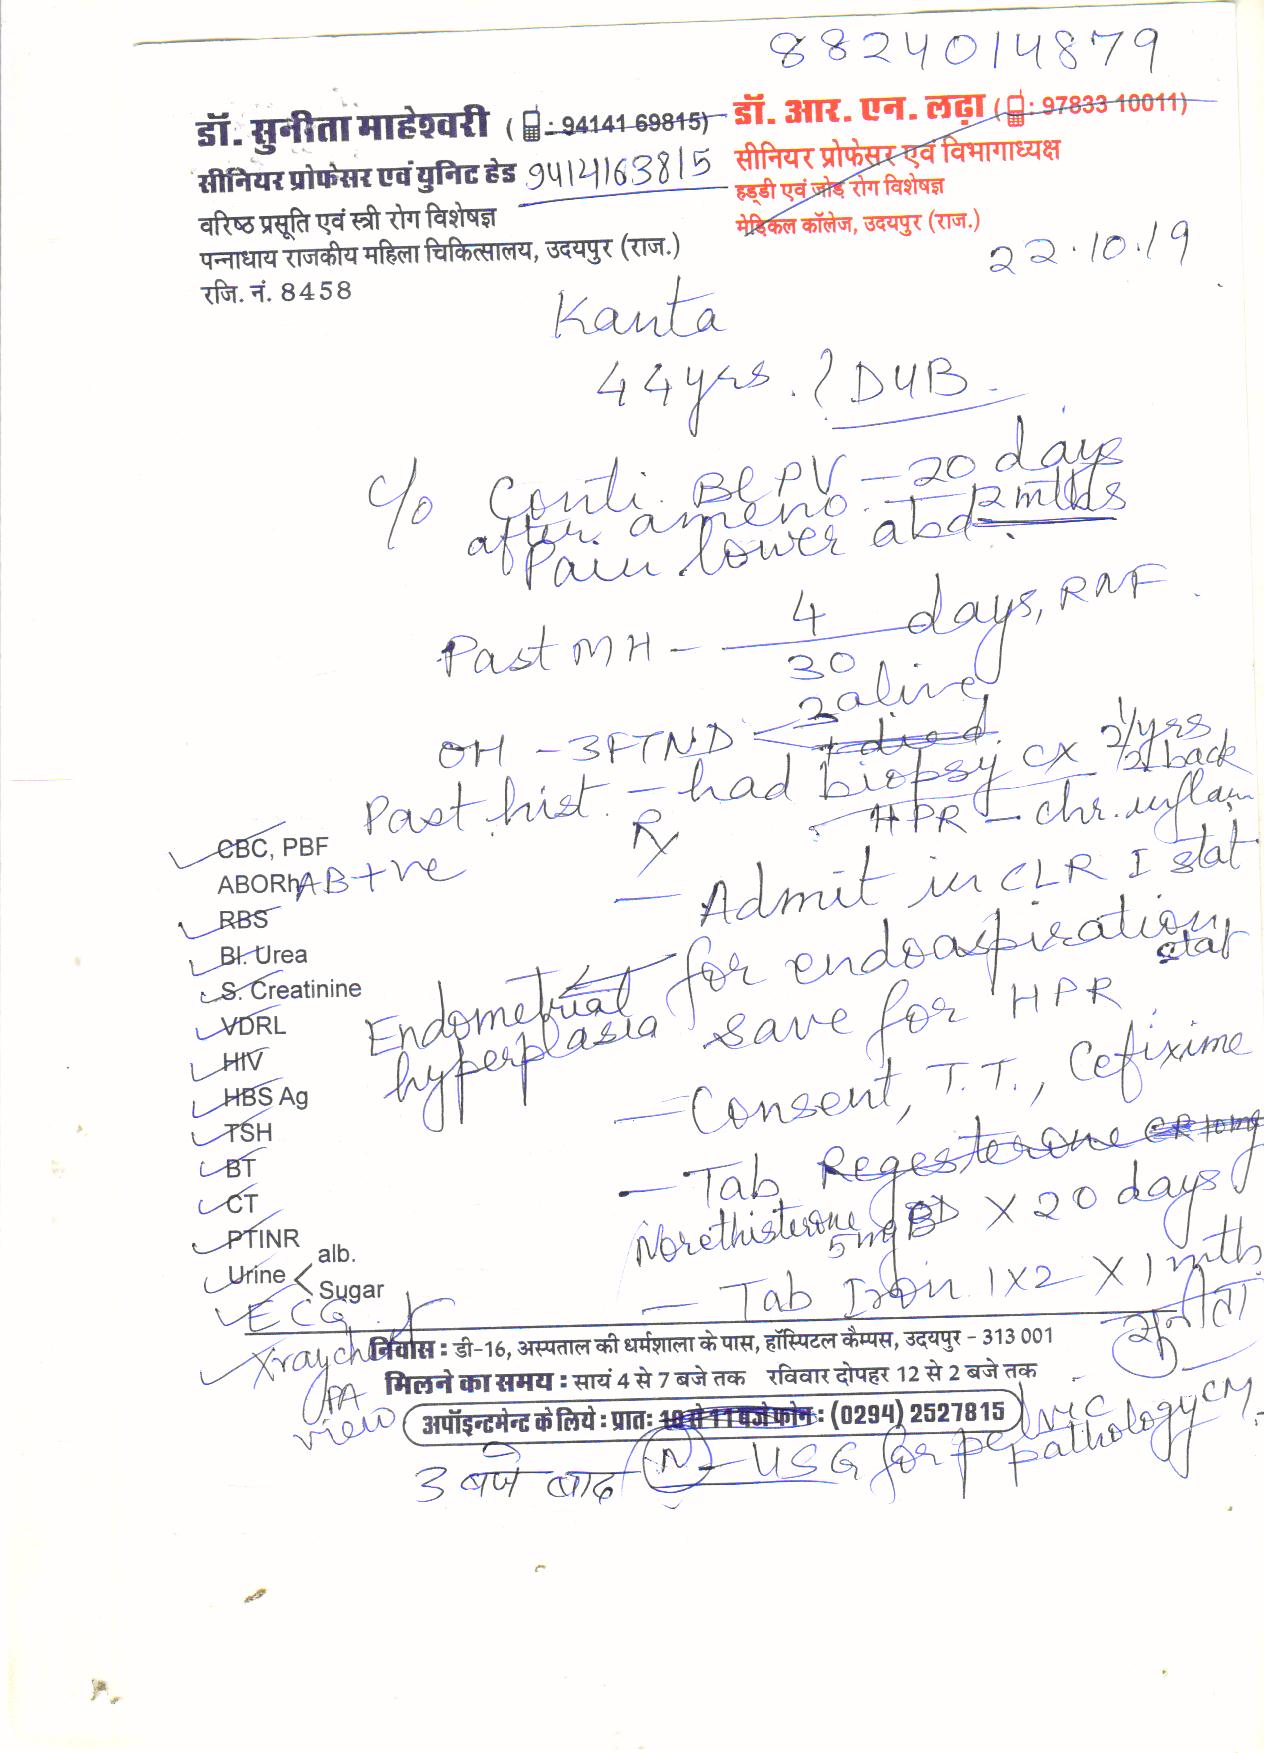 8824014879
डॉ. सुनीता माहेश्वरी (: 94141 69815)
सीनियर प्रोफेसर एवं युनिट हेड 9414163815
वरिष्ठ प्रसूति एवं स्त्री रोग विशेषज्ञ
पन्नाधाय राजकीय महिला चिकित्सालय, उदयपुर (राज.)
रजि. नं. 8458
डॉ. आर. एन. लढ़ा (: 97833 10011)
सीनियर प्रोफेसर एवं विभागाध्यक्ष
हड्डी एवं जोड़ रोग विशेषज्ञ
मेडिकल कॉलेज, उदयपुर (राज.)
22.10.19
Kanta
44 yrs. ? DUB.
c/o Conti. Bl PV - 20 days
after ameno. - 2 mths
Pain lower abd.
Past MH - 4/30 days, RNF.
OH - 3 FTND < 2 alive
1 died.
Past hist. - had biopsy CX 2 1/2 yrs back
HPR - chr. inflam
Rx
- Admit in CLR I stat
for endoaspiration stat
save for HPR
Endometrial
hyperplasia
- Consent, T.T., Cefixime
- Tab Regesterone CR 10mg
Norethisterone 5mg BD X 20 days
- Tab Iron 1X2 X 1 mth.
सुनीता
CBC, PBF
ABORh AB+ve
RBS
Bl. Urea
S. Creatinine
VDRL
HIV
HBS Ag
TSH
BT
CT
PTINR
Urine < alb.
Sugar
ECG
Xray chest
PA
view
निवास : डी-16, अस्पताल की धर्मशाला के पास, हॉस्पिटल कैम्पस, उदयपुर - 313 001
मिलने का समय : सायं 4 से 7 बजे तक रविवार दोपहर 12 से 2 बजे तक
अपॉइन्टमेन्ट के लिये : प्रातः 10 से 11 बजे फोन : (0294) 2527815
3 बजे बाद
(N) - USG for pelvic
pathology CM